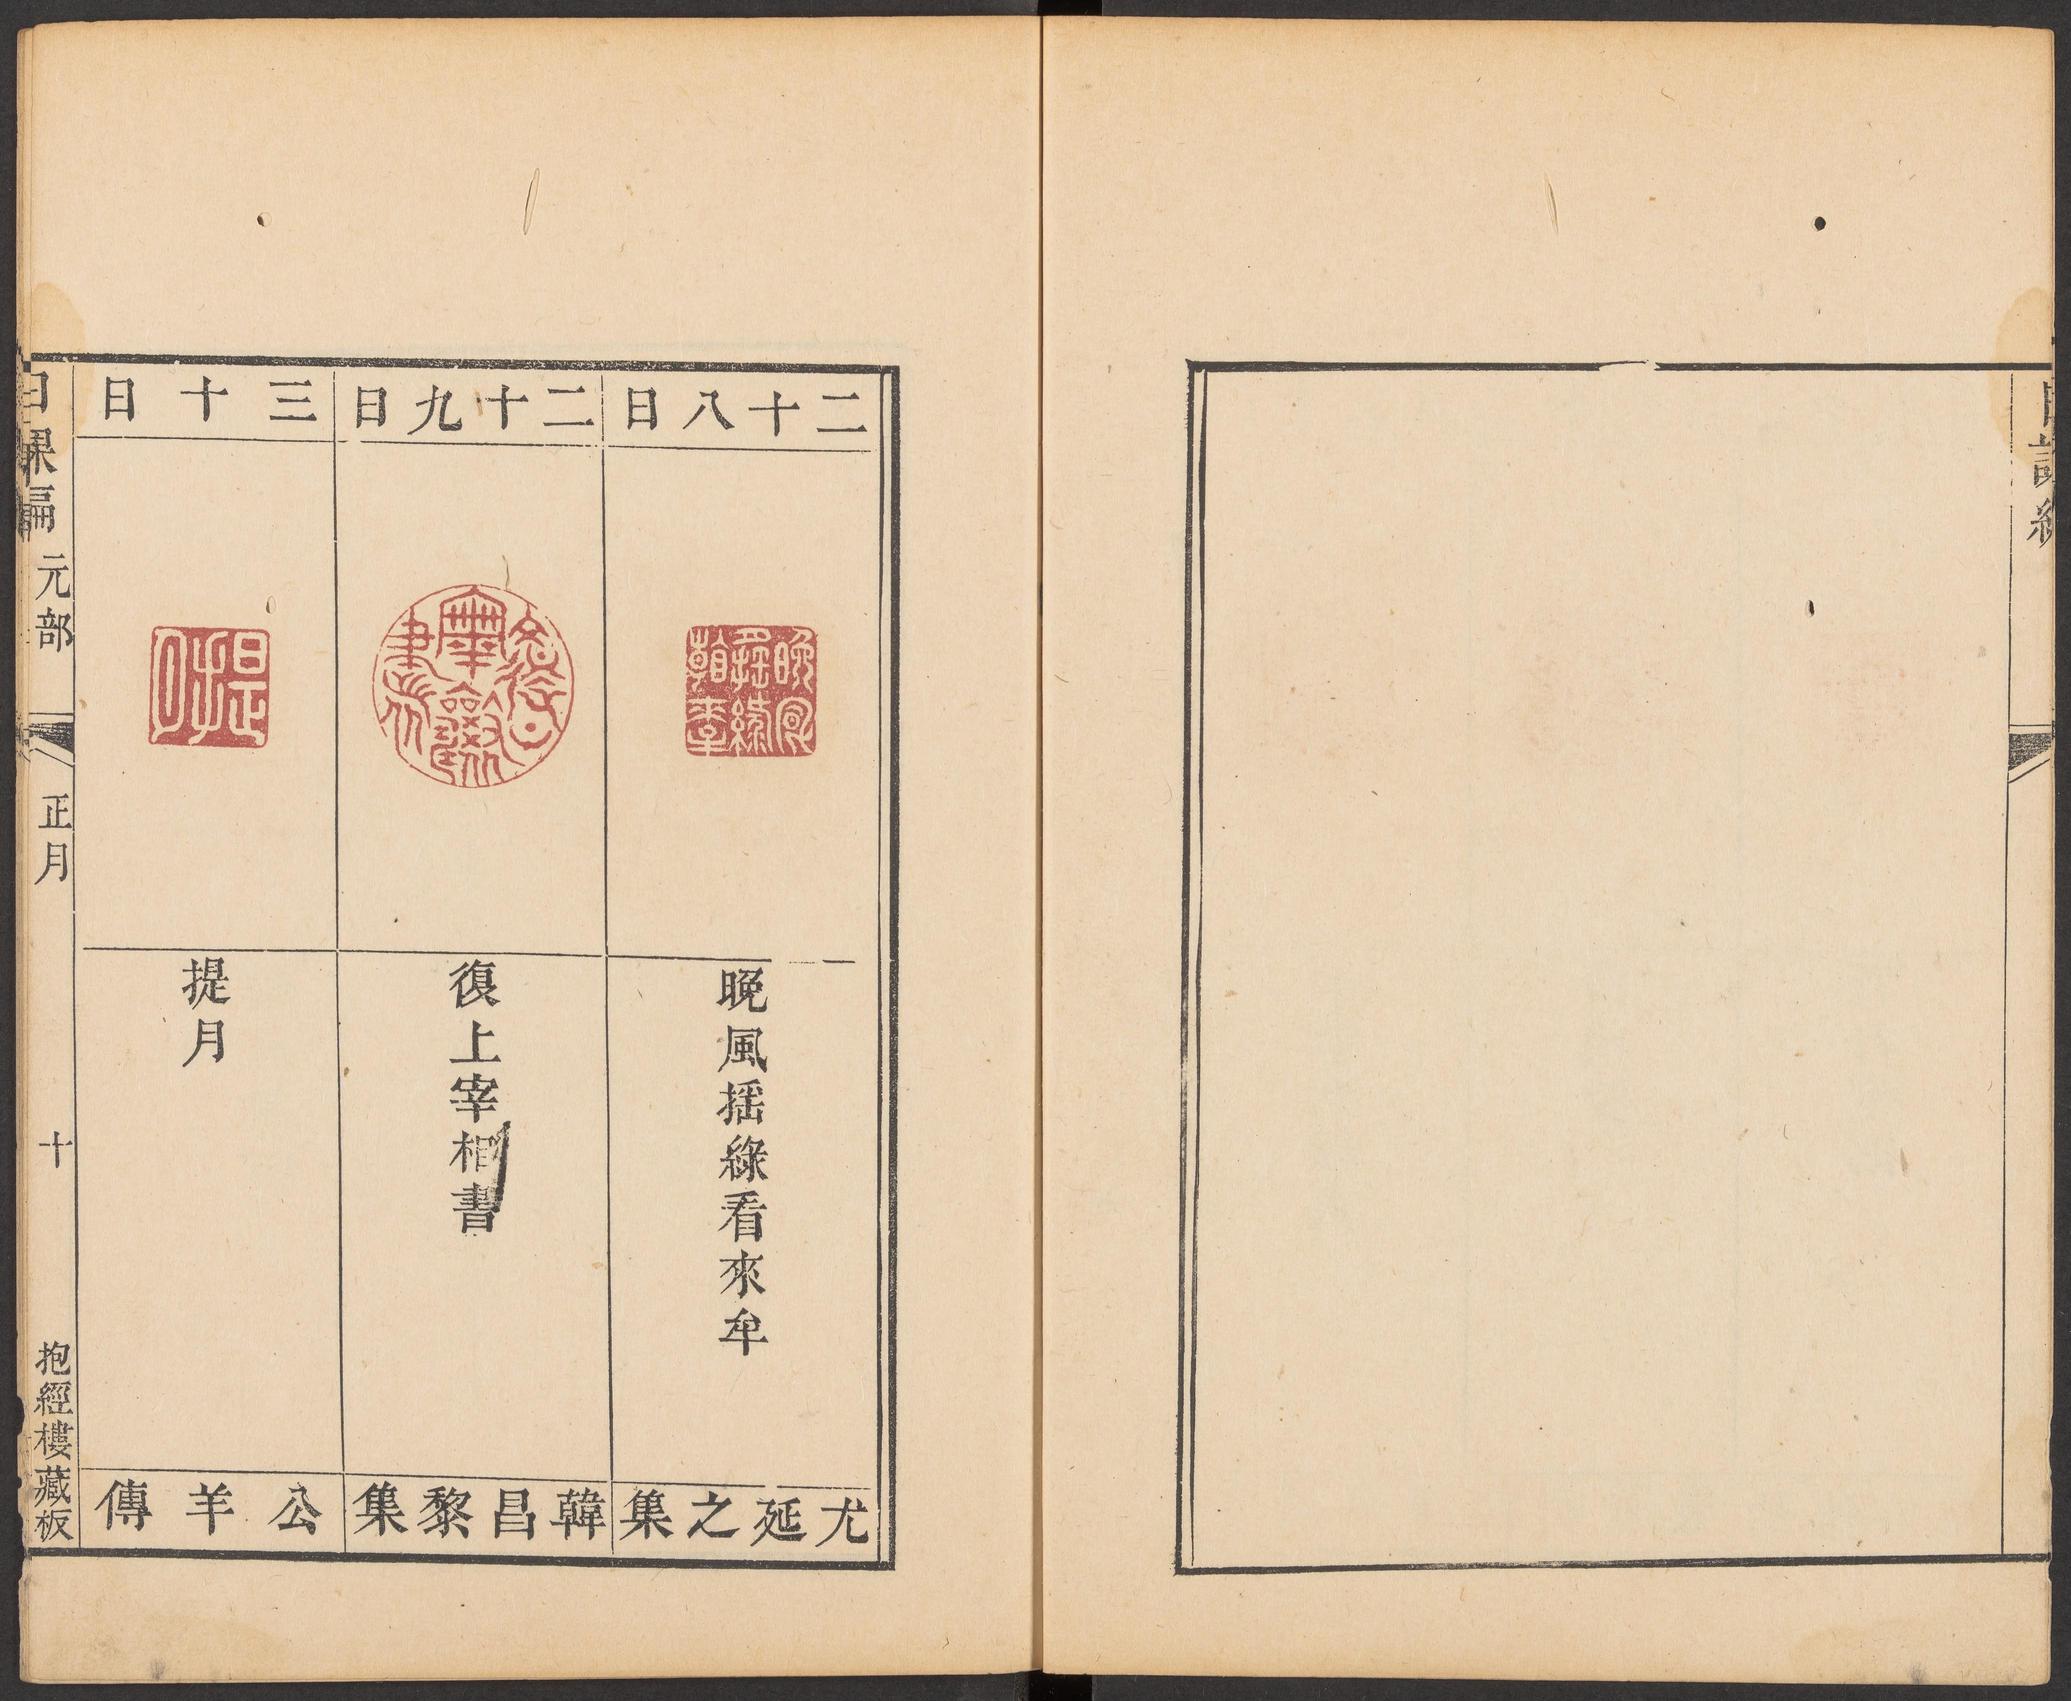 日課編
二十八日
晚風揺綠看來牟
尤延之集
二十九日
復上宰相書
韓昌黎集
三十日
提月
公羊傳
日課編 元部 正月 十 抱經樓藏板